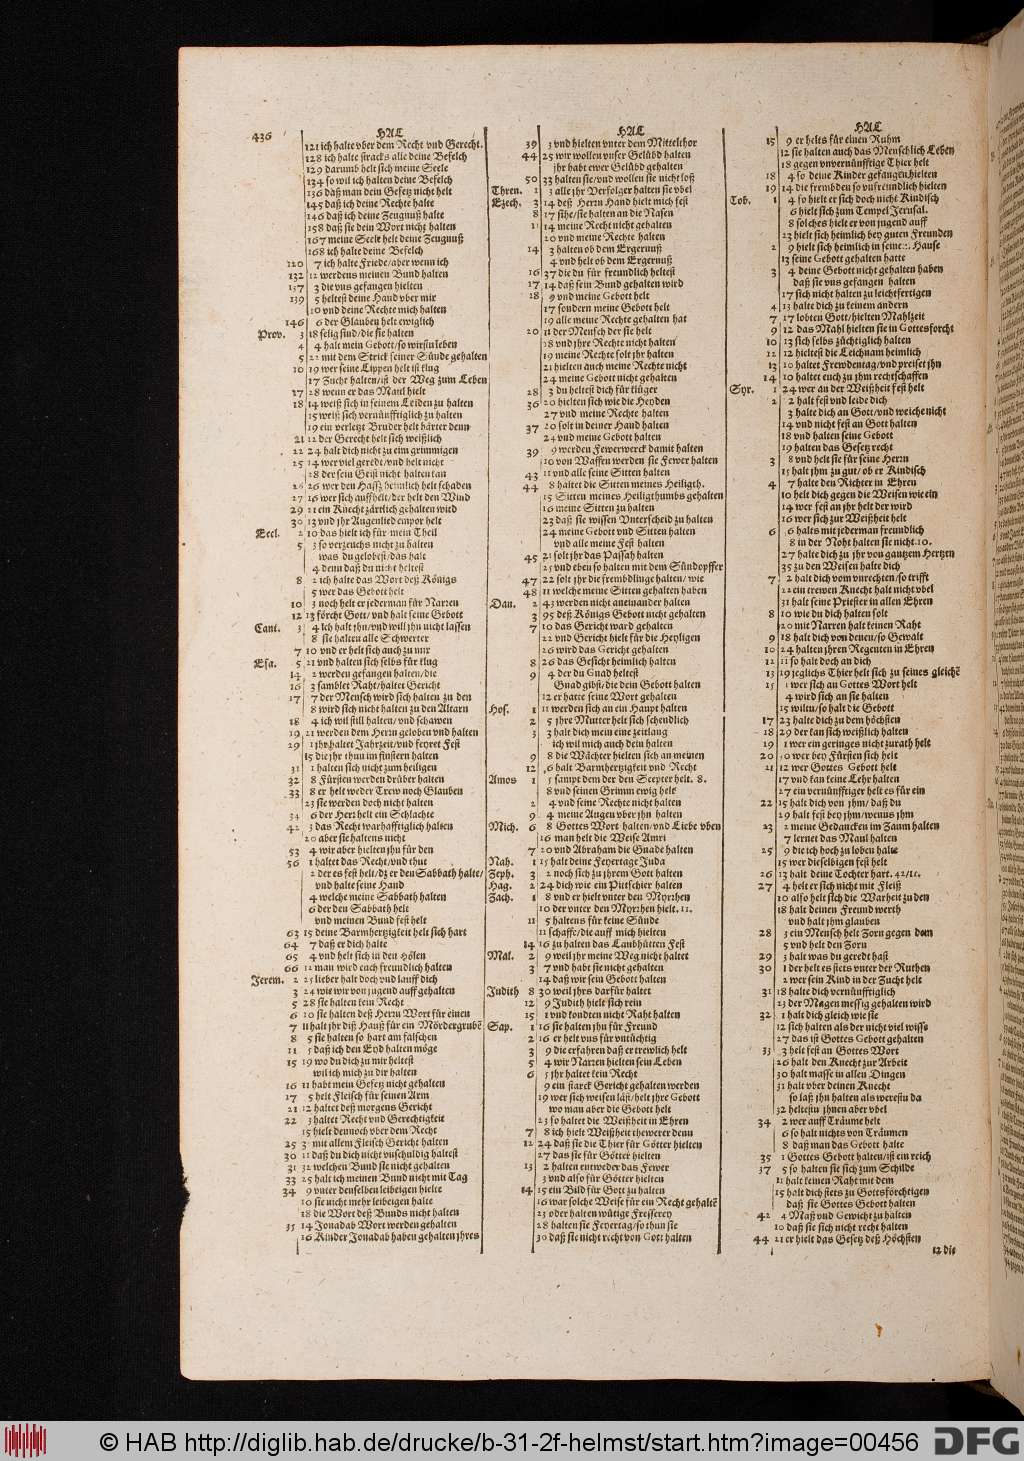 436
HAL
121 ich halte vber dem Recht vnd Gerecht.
128 ich halte stracks alle deine Befelch
129 darumb helt sich meine Seele
134 so wil ich halten deine Befelch
136 daß man dein Gesetz nicht helt
145 daß ich deine Rechte halte
146 daß ich deine Zeugnuß halte
158 daß sie dein Wort nicht halten
167 meine Seele helt deine Zeugnuß
168 ich halte deine Befelch
120 7 ich halte Friede/aber wenn ich
132 12 werdens meinen Bund halten
137 3 die vns gefangen hielten
139 5 heltest deine Hand vber mir
10 vnd deine Rechte mich halten
146 6 der Glauben helt ewiglich
Prov. 3 18 selig sind/die sie halten
4 4 halt mein Gebott/so wirstu leben
5 22 mit dem Strick seiner Sünde gehalten
10 19 wer seine Lippen helt ist klug
17 Zucht halten/ist der Weg zum Leben
17 28 wenn er das Maul hielt
18 14 weiß sich in seinem Leiden zu halten
15 weiß sich vernünfftiglich zu halten
19 ein verletzt Bruder helt härter denn
21 12 der Gerecht helt sich weißlich
22 24 halt dich nicht zu eim grimmigen
25 14 wer viel geredt/vnd helt nicht
28 der sein Geist nicht halten kan
26 26 wer den Haß heimlich helt schaden
27 16 wer sich auffhelt/der helt den Wind
29 21 ein Knecht zärtlich gehalten wird
30 13 vnd jhr Augenlied empor helt
Eccl. 2 10 das hielt ich für mein Theil
5 3 so verzeuchs nicht zu halten
was du gelobest/das halt
4 denn daß du nicht heltest
8 2 ich halte das Wort deß Königs
5 wer das Gebott helt
10 3 noch helt er jederman für Narren
12 13 förcht Gott/vnd halt seine Gebott
Cant. 3 4 ich halt jhn/vnd will jhn nicht lassen
8 sie halten alle Schwerter
7 10 vnd er helt sich auch zu mir
Esa. 5 21 vnd halten sich selbs für klug
14 2 werden gefangen halten/die
16 3 samblet Raht/haltet Gericht
17 7 der Mensch wird sich halten zu den
8 wird sich nicht halten zu den Altarn
18 4 ich wil still halten/vnd schawen
19 21 werden dem Herrn geloben vnd halten
29 1 jhr haltet Jahrzeit/vnd feyret Fest
15 die jhr thun im finstern halten
31 1 halten sich nicht zum heiligen
32 8 Fürsten werden drüber halten
33 8 er helt weder Trew noch Glauben
23 sie werden doch nicht halten
34 6 der Herr helt ein Schlachte
42 3 das Recht warhafftiglich halten
20 aber sie haltens nicht
53 4 wir aber hielten jhn für den
56 1 haltet das Recht/vnd thut
2 der es fest helt/dz er den Sabbath halte/
vnd halte seine Hand
4 welche meine Sabbath halten
6 der den Sabbath helt
vnd meinen Bund fest helt
63 15 deine Barmhertzigkeit helt sich hart
64 7 daß er dich halte
65 4 vnd helt sich in den Hölen
66 12 man wird euch freundlich halten
Jerem. 2 25 lieber halt doch vnd lauff dich
3 24 wie wir von jugend auff gehalten
5 28 sie halten kein Recht
6 10 sie halten deß Herrn Wort für einen
7 11 halt jhr diß Hauß für ein Mördergrubē
8 5 sie halten so hart am falschen
11 5 daß ich den Eyd halten möge
15 19 wo du dich zu mir heltest
wil ich mich zu dir halten
16 11 habt mein Gesetz nicht gehalten
17 5 helt Fleisch für seinen Arm
21 12 haltet deß morgens Gericht
22 3 haltet Recht vnd Gerechtigkeit
15 hielt dennoch vber dem Recht
25 3 mit allem Fleisch Gericht halten
30 11 daß du dich nicht vnschuldig haltest
31 32 welchen Bund sie nicht gehalten
33 25 halt ich meinen Bund nicht mit Tag
34 9 vnter denselben leibeigen hielte
10 sie nicht mehr leibeigen halte
18 die Wort deß Bunds nicht halten
35 14 Jonadab Wort werden gehalten
16 Kinder Jonadab haben gehalten jhres
HAL
39 3 vnd hielten vnter dem Mittelthor
44 25 wir wollen vnser Gelübd halten
jhr habt ewer Gelübd gehalten
50 33 halten sie/vnd wollen sie nicht loß
Thren. 1 3 alle jhr Verfolger halten sie vbel
Ezech. 3 14 deß Herrn Hand hielt mich fest
8 17 sihe/sie halten an die Nasen
11 14 meine Recht nicht gehalten
20 vnd meine Rechte halten
14 3 halten ob dem Ergernuß
4 vnd helt ob dem Ergernuß
16 37 die du für freundlich heltest
17 14 daß sein Bund gehalten wird
18 9 vnd meine Gebott helt
17 sondern meine Gebott helt
19 alle meine Rechte gehalten hat
20 11 der Mensch der sie helt
18 vnd jhre Recht nicht halten
19 meine Rechte solt jhr halten
21 hielten auch meine Rechte nicht
24 meine Gebott nicht gehalten
28 3 du heltest dich für klüger
36 20 hielten sich wie die Heyden
27 vnd meine Rechte halten
37 20 solt in deiner Hand halten
24 vnd meine Gebott halten
39 9 werden Fewerwerck damit halten
10 von Waffen werden sie Fewer halten
43 11 vnd alle seine Sitten halten
44 8 haltet die Sitten meines Heiligth.
15 Sitten meines Heiligthumbs gehalten
16 meine Sitten zu halten
23 daß sie wissen Vnterscheid zu halten
24 meine Gebott vnd Sitten halten
vnd alle meine Fest halten
45 21 solt jhr das Passah halten
25 vnd eben so halten mit dem Sündopffer
47 22 solt jhr die frembdlinge halten/wie
48 11 welche meine Sitten gehalten haben
Dan. 2 43 werden nicht aneinander halten
3 95 deß Königs Gebott nicht gehalten
7 10 das Gericht ward gehalten
22 vnd Gericht hielt für die Heyligen
26 wird das Gericht gehalten
8 26 das Gesicht heimlich halten
9 4 der du Gnad heltest
Gnad gibst/die dein Gebott halten
12 er hatte seine Wort gehalten
Hos. 1 11 werden sich an ein Haupt halten
2 5 jhre Mutter helt sich schendlich
3 3 halt dich mein eine zeitlang
ich wil mich auch dein halten
9 8 die Wächter hielten sich an meinen
12 6 halt Barmhertzigkeit vnd Recht
Amos 1 5 sampt dem der den Scepter helt. 8.
8 vnd seinen Grimm ewig helt
2 4 vnd seine Rechte nicht halten
9 4 meine Augen vber jhn halten
Mich. 6 8 Gottes Wort halten/vnd Liebe vben
16 man helt die Weise Amri
7 20 vnd Abraham die Gnade halten
Nah. 1 15 halt deine Feyertage Juda
Zeph. 3 2 noch sich zu jhrem Gott halten
Hag. 2 24 dich wie ein Pittschier halten
Zach. 1 8 vnd er hielt vnter den Myrrhen
10 der vnter den Myrrhen hielt. 11.
11 5 haltens für keine Sünde
11 schaffe/die auff mich hielten
14 16 zu halten das Laubhütten Fest
Mal. 2 9 weil jhr meine Weg nicht haltet
3 7 vnd habt sie nicht gehalten
14 daß wir sein Gebott halten
Judith 8 30 weil jhrs darfür haltet
12 9 Judith hielt sich rein
15 1 vnd kondten nicht Raht halten
Sap. 1 16 sie halten jhn für Freund
2 16 er helt vns für vntüchtig
3 9 die erfahren daß er trewlich helt
5 4 wir Narren hielten sein Leben
6 5 jhr haltet kein Recht
9 ein starck Gericht gehalten werden
19 wer sich weisen läst/helt jhre Gebott
wo man aber die Gebott helt
23 so haltet die Weißheit in Ehren
7 8 ich hielt Weißheit thewerer denn
12 24 daß sie die Thier für Götter hielten
27 das sie für Götter hielten
13 2 halten entweder das Fewer
3 vnd also für Götter hielten
14 15 ein Bild für Gott zu halten
16 war solche Weise für ein Recht gehaltē
23 oder halten wütige Fresserey
28 halten sie Feyertag/so thun sie
30 daß sie nicht recht von Gott halten
HAL
15 9 er helts für einen Ruhm
12 sie halten auch das Menschlich Leben
18 gegen vnvernünfftige Thier helt
18 4 so deine Kinder gefangen hielten
19 14 die frembden so vnfreundlich hielten
Tob. 1 4 so hielt er sich doch nicht Kindisch
6 hielt sich zum Tempel Jerusal.
8 solches hielt er von jugend auff
23 hielt sich heimlich bey guten Freunden
2 9 hielt sich heimlich in seinem Hause
13 seine Gebott gehalten hatte
3 4 deine Gebott nicht gehalten haben
daß sie vns gefangen halten
17 sich nicht halten zu leichtfertigen
4 13 halte dich zu keinem andern
7 17 lobten Gott/hielten Mahlzeit
9 12 das Mahl hielten sie in Gottesforcht
10 13 sich selbs züchtiglich halten
12 12 hieltest die Leichnam heimlich
13 10 haltet Frewdentag/vnd preiset jhn
14 10 haltet euch zu jhm rechtschaffen
Syr. 1 24 wer an der Weißheit fest helt
2 2 halt fest vnd leide dich
3 halte dich an Gott/vnd weiche nicht
14 vnd nicht fest an Gott halten
18 vnd halten seine Gebott
19 halten das Gesetz recht
3 8 vnd helt sie für seine Herrn
15 halt jhm zu gut/ob er Kindisch
4 7 halte den Richter in Ehren
10 helt dich gegen die Weisen wie ein
14 wer fest an jhr helt der wird
16 wer sich zur Weißheit helt
6 6 halts mit jederman freundlich
8 in der Noht halten sie nicht. 10.
27 halte dich zu jhr von gantzem Hertzen
35 zu den Weisen halte dich
7 2 halt dich vom vnrechten/so trifft
22 ein trewen Knecht halt nicht vbel
31 halt seine Priester in allen Ehren
8 10 wie du dich halten solt
20 mit Narren halt keinen Raht
9 18 halt dich von denen/so Gewalt
10 24 halten jhren Regenten in Ehren
12 11 so halt doch an dich
13 19 jeglichs Thier helt sich zu seines gleichē
15 1 wer sich an Gottes Wort helt
4 wird sich an sie halten
15 wiltu/so halt die Gebott
17 23 halte dich zu dem höchsten
18 29 der kan sich weißlich halten
19 1 wer ein geringes nicht zurath helt
20 29 wer bey Fürsten sich helt
21 12 wer Gottes Gebott helt
17 vnd kan keine Lehr halten
27 ein vernünfftiger helt es für ein
22 15 halt dich von jhm/daß du
29 halt fest bey jhm/wenns jhm
23 2 meine Gedancken im Zaum halten
7 lernet das Maul halten
25 9 die ich hoch zu loben halte
15 wer dieselbigen fest helt
26 13 halt deine Tochter hart. 42/11.
27 4 helt er sich nicht mit Fleiß
10 also helt sich die Warheit zu den
18 halt denen Freund werth
vnd halt jhm glauben
28 3 ein Mensch helt Zorn gegen dem
5 vnd helt den Zorn
29 3 halt was du geredt hast
30 1 der helt es stets vnter der Ruthen
2 wer sein Kind in der Zucht helt
31 18 halte dich vernünfftiglich
23 der Magen messig gehalten wird
32 1 halt dich gleich wie sie
12 sich halten als der nicht viel wisse
27 das ist Gottes Gebott gehalten
33 3 helt fest an Gottes Wort
26 halt den Knecht zur Arbeit
30 halt masse in allen Dingen
31 halt vber deinen Knecht
so laß jhn halten als werestu da
32 heltestu jhnen aber vbel
34 2 wer auff Träume helt
6 so halt nichts von Träumen
8 daß man das Gebott halte
35 1 Gottes Gebott halten/ist ein reich
37 5 so halten sie sich zum Schilde
11 halt keinen Raht mit dem
15 halt dich stets zu Gottsförchtigen
daß sie Gottes Gebott halten
42 4 Maß vnd Gewicht zu halten
10 daß sie sich nicht recht halten
44 21 er hielt das Gesetz deß Höchsten
12 die
© HAB http://diglib.hab.de/drucke/b-31-2f-helmst/start.htm?image=00456
DFG